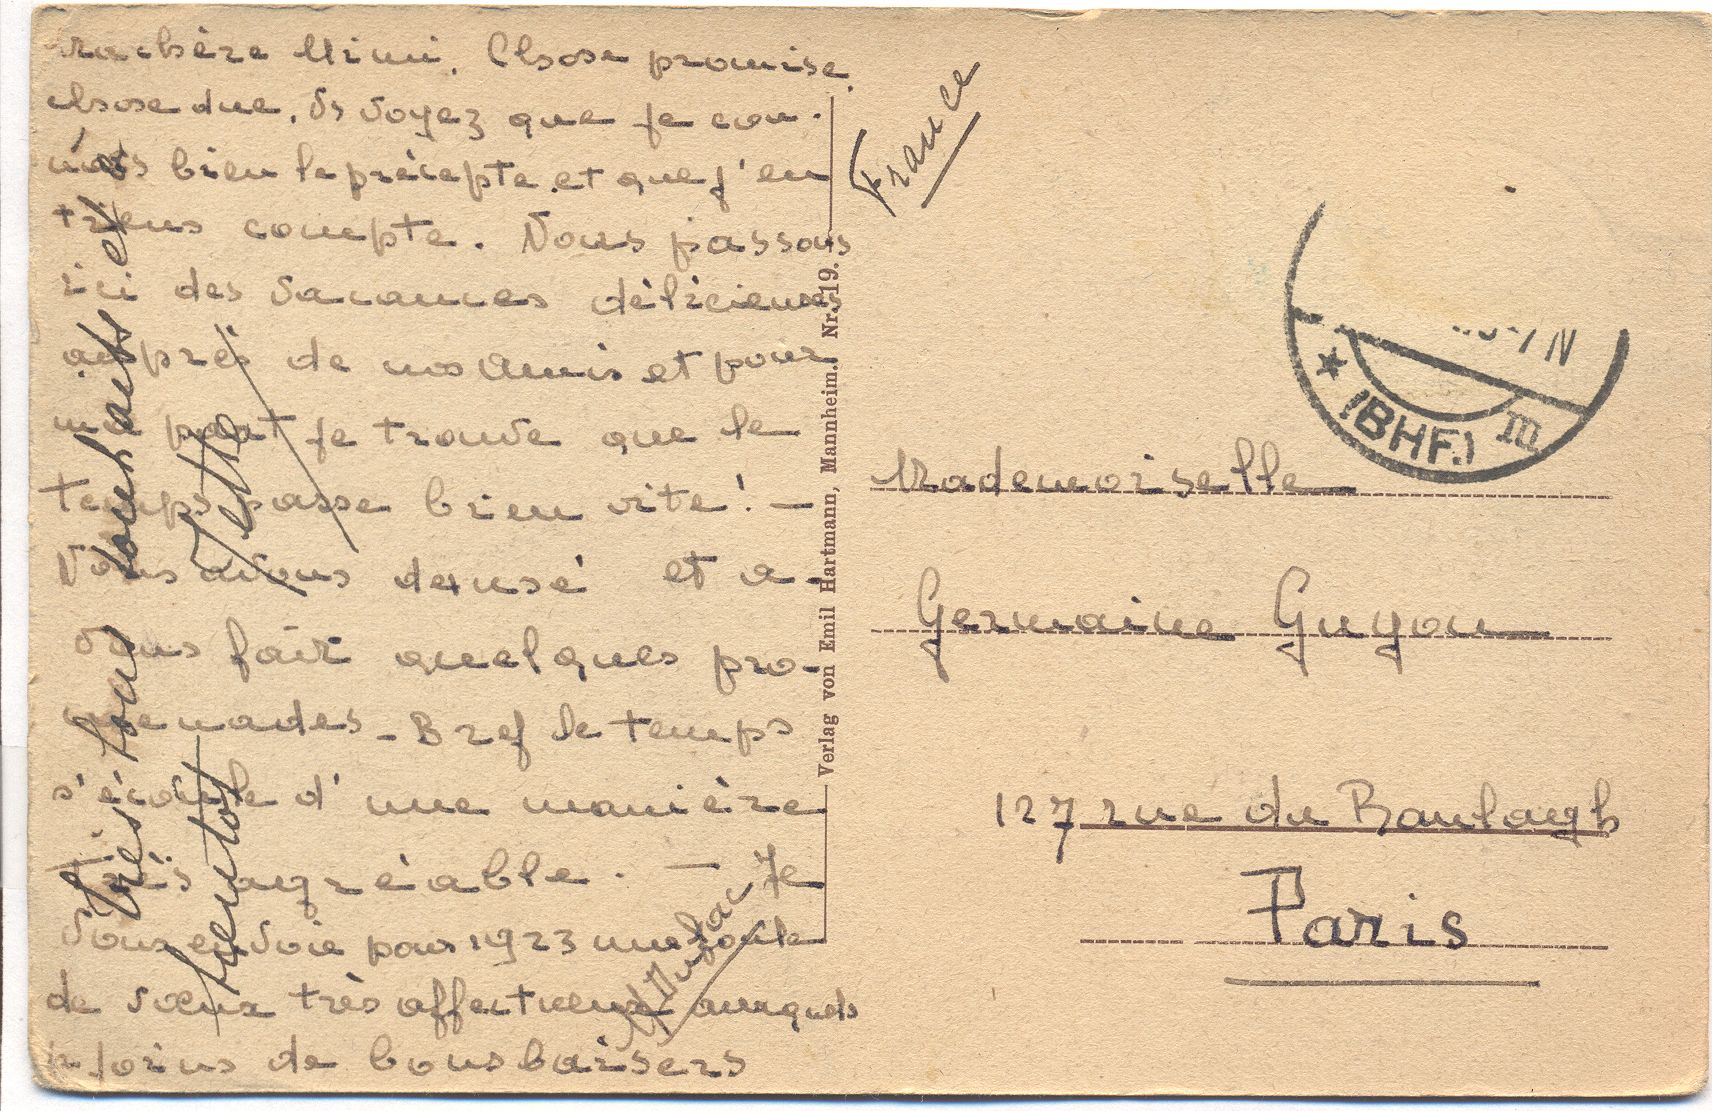 Ma chère Mimi. Chose promise
chose due. Vs voyez que je con-
nais bien le précepte et que j'en
tiens compte. Nous passons
ici des vacances délicieuses
auprès de nos amis et pour
ma part je trouve que le
temps passe bien vite! —
Nous avons dansé et a-
vons fait quelques pro-
menades - Bref le temps
s'écoule d'une manière
très agréable. — Je
vous envoie pour 1923 une foule
de vœux très affectueux auxquels
je joins de bons baisers
Très bons souhaits et
à bientôt
Yette
Verlag von Emil Hartmann, Mannheim. Nr. 19.
France
7 N
* (BHF.) III
Mademoiselle
Germaine Guyon
127 rue du Ranlagh
Paris